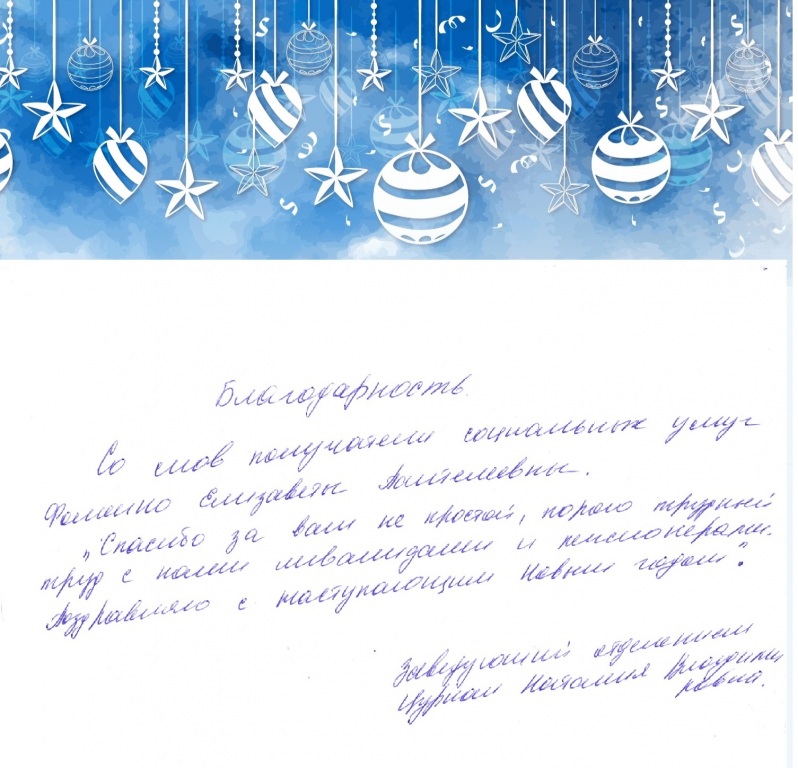 Благодарность.
Со слов получателя социальных услуг
Фоменко Елизаветы Пантелеевны.
„Спасибо за ваш не простой, порою трудный
труд с нами инвалидами и пенсионерами.
Поздравляю с наступающим Новым годом".
Заведующий отделением
Наталия Владими
ровна.